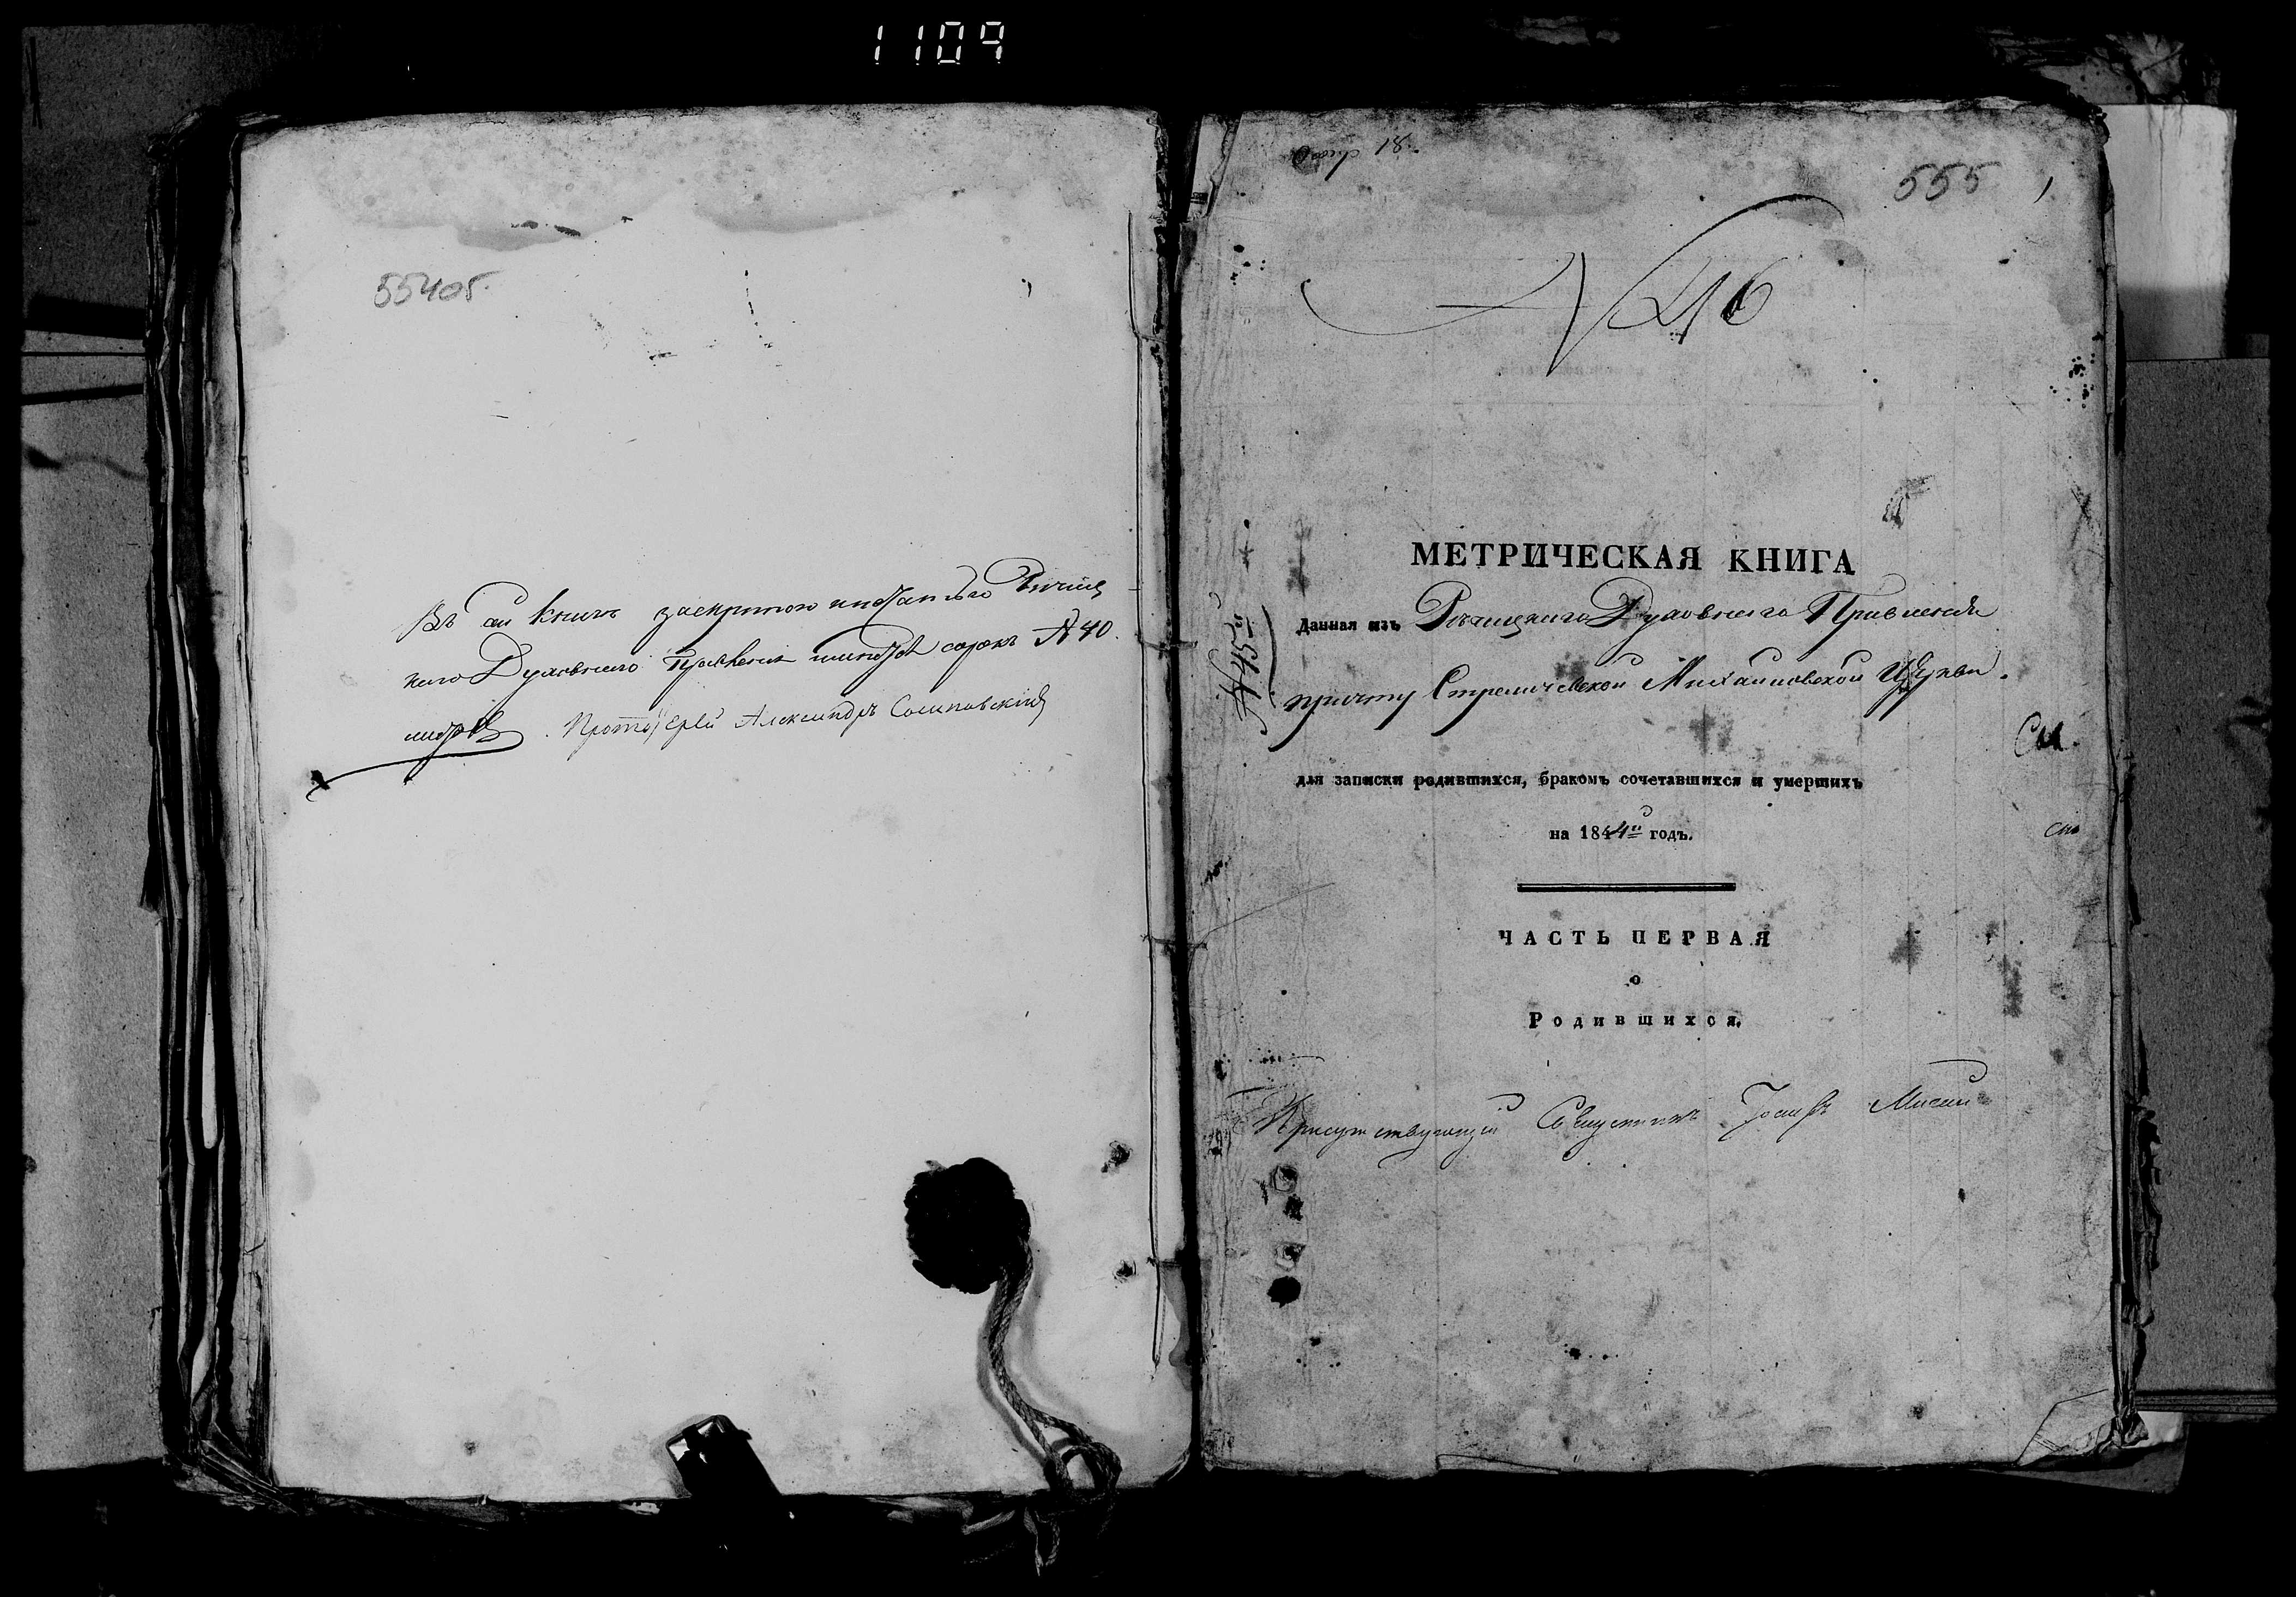 1109
554об.
Въ сей книгѣ заскрепою и печатью Рѣчиц
каго Духовнаго Правленія листовъ сорокъ № 40.
листовъ. Протоіерей Александръ
18.
555
1
№
МЕТРИЧЕСКАЯ КНИГА
Данная изъ Рѣчицкаго Духовнаго Правленія
причту Стреличевской Михайловской Церкви.
№ 45й
для записки родившихся, бракомъ сочетавшихся и умершихъ
на 1844й годъ.
ЧАСТЬ ПЕРВАЯ
о
Родившихся.
Присутствующій Священникъ Іосифъ